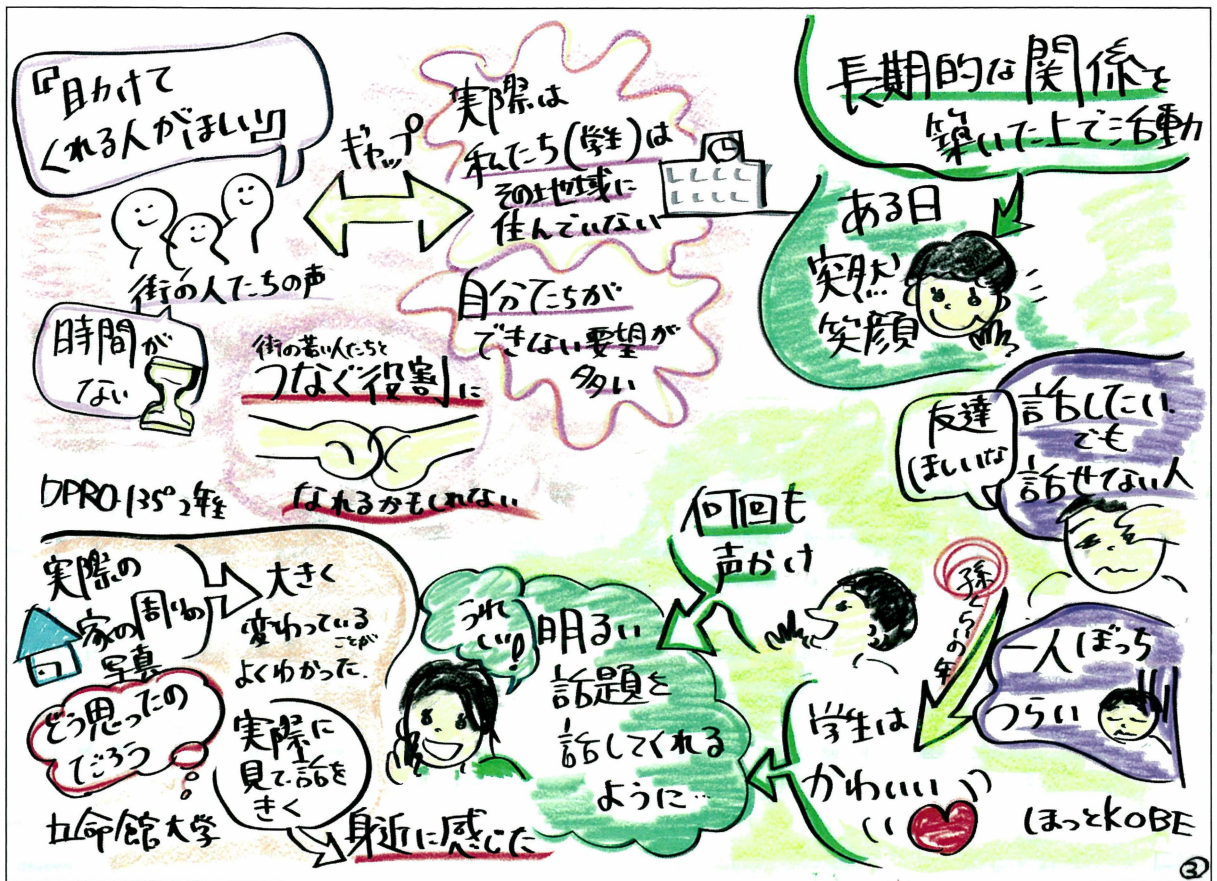 『助けて
くれる人がほしい』
街の人たちの声
ギャップ
実際は
私たち(学生)は
その地域に
住んでいない
自分たちが
できない要望が
多い
時間が
ない
街の若い人たちと
つなぐ役割に
なれるかもしれない
DPRO 135° 2年生
長期的な関係を
築いた上で活動
ある日
突然
笑顔
友達
ほしいな
話したい
でも
話せてない人
一人ぼっち
つらい
孫くらいの年
何回も
声かけ
学生は
かわいい
い
ほっとKOBE
うれ
しい!
明るい
話題を
話してくれる
ように…
実際の
家の周りの
写真
大きく
変わっている
ことが
よくわかった.
どう思ったの
だろう
実際に
見て、話を
きく
身近に感じた
立命館大学
③